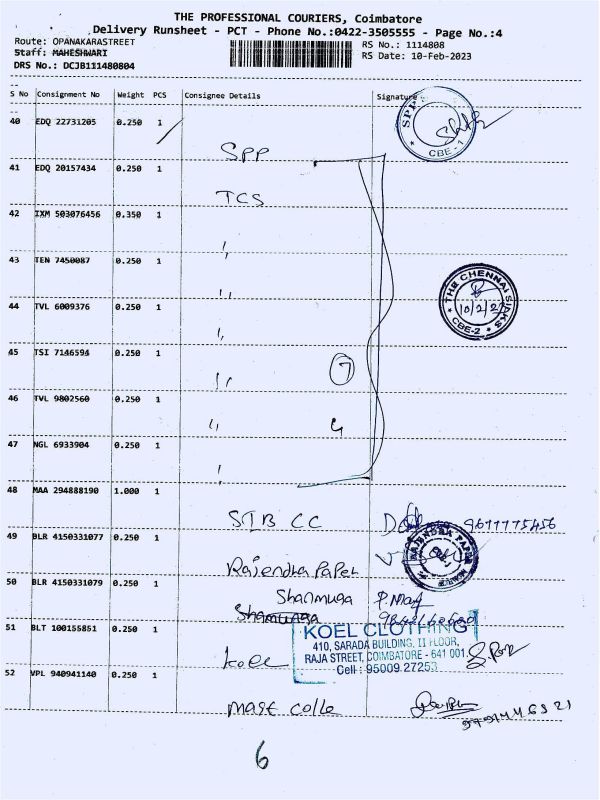 THE PROFESSIONAL COURIERS, Coimbatore
Delivery Runsheet - PCT - Phone No.:0422-3505555 - Page No.:4
Route: OPANAKARASTREET RS No.: 1114808
Staff: MAHESHWARI RS Date: 10-Feb-2023
DRS No.: DCJB111480804
S No Consignment No Weight PCS Consignee Details Signature
40 EDQ 22731205 0.250 1
SPP
SPP
CBE-1
41 EDQ 20157434 0.250 1
TCS
42 IXM 503076456 0.350 1
,,
43 TEN 7450087 0.250 1
,,
THE CHENNAI SILKS
10/2/23
CBE-2
44 TVL 6009376 0.250 1
,,
45 TSI 7146594 0.250 1
,,
7
46 TVL 9802560 0.250 1
,,
4
47 NGL 6933904 0.250 1
,
48 MAA 294888190 1.000 1
STB CC
9677775456
49 BLR 4150331077 0.250 1
Rajendra Paper
RAJENDRA PAPER MART
50 BLR 4150331079 0.250 1
Shanmuga
P. May
51 BLT 100155851 0.250 1
Koel
KOEL CLOTHING
410, SARADA BUILDING, II FLOOR,
RAJA STREET, COIMBATORE - 641 001.
Cell : 95009 27253
52 VPL 940941140 0.250 1
mast colle
6